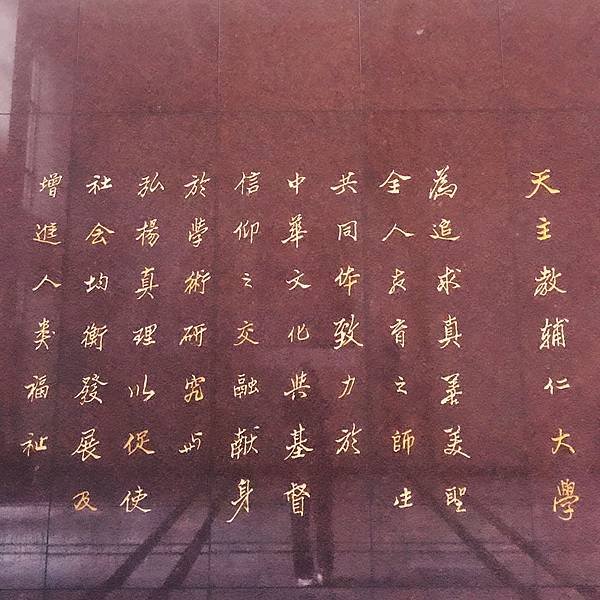 天主教輔仁大學
為追求真善美聖
全人教育之師生
共同体致力於
中華文化與基督
信仰之交融献身
於學術研究与
弘楊真理以促使
社会均衡發展及
增進人类福祉